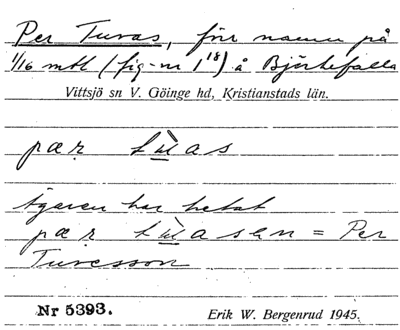 Per Turas, förr namn på
1/16 mtl (fig-nr 1¹⁸) å Björkefalla
Vittsjö sn V. Göinge hd, Kristianstads län.
pær tu̲as
Ägaren har hetat
pær tu̲asen = Per
Turesson
Nr 5393.
Erik W. Bergenrud 1945.